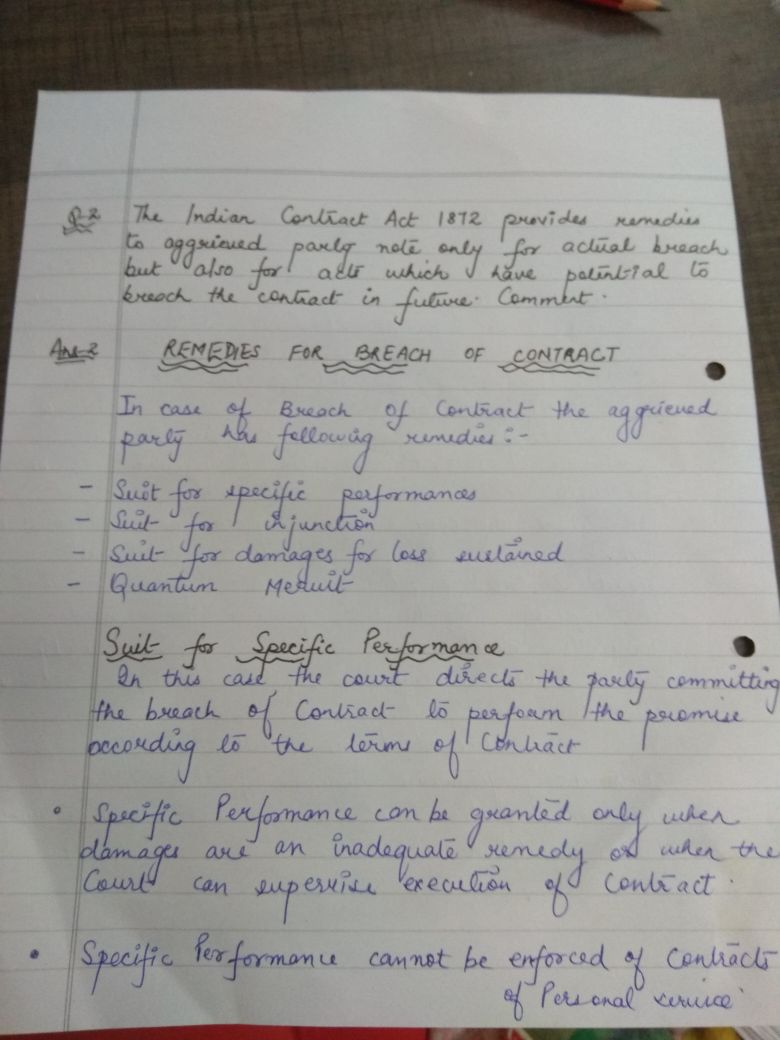 Q-2 The Indian Contract Act 1872 provides remedies
to aggrieved party note only for actual breach
but also for acts which have potential to
breach the contract in future. Comment.
Ans-2 REMEDIES FOR BREACH OF CONTRACT
In case of Breach of Contract the aggrieved
party has following remedies:-
- Suit for specific performances
- Suit for injunction
- Suit for damages for loss sustained
- Quantum Meruit
Suit for Specific Performance
In this case, the court directs the party committing
the breach of Contract to perform the promise
according to the terms of Contract
• Specific Performance can be granted only when
damages are an inadequate remedy or when the
Court can supervise execution of Contract.
• Specific Performance cannot be enforced of Contracts
of Personal service